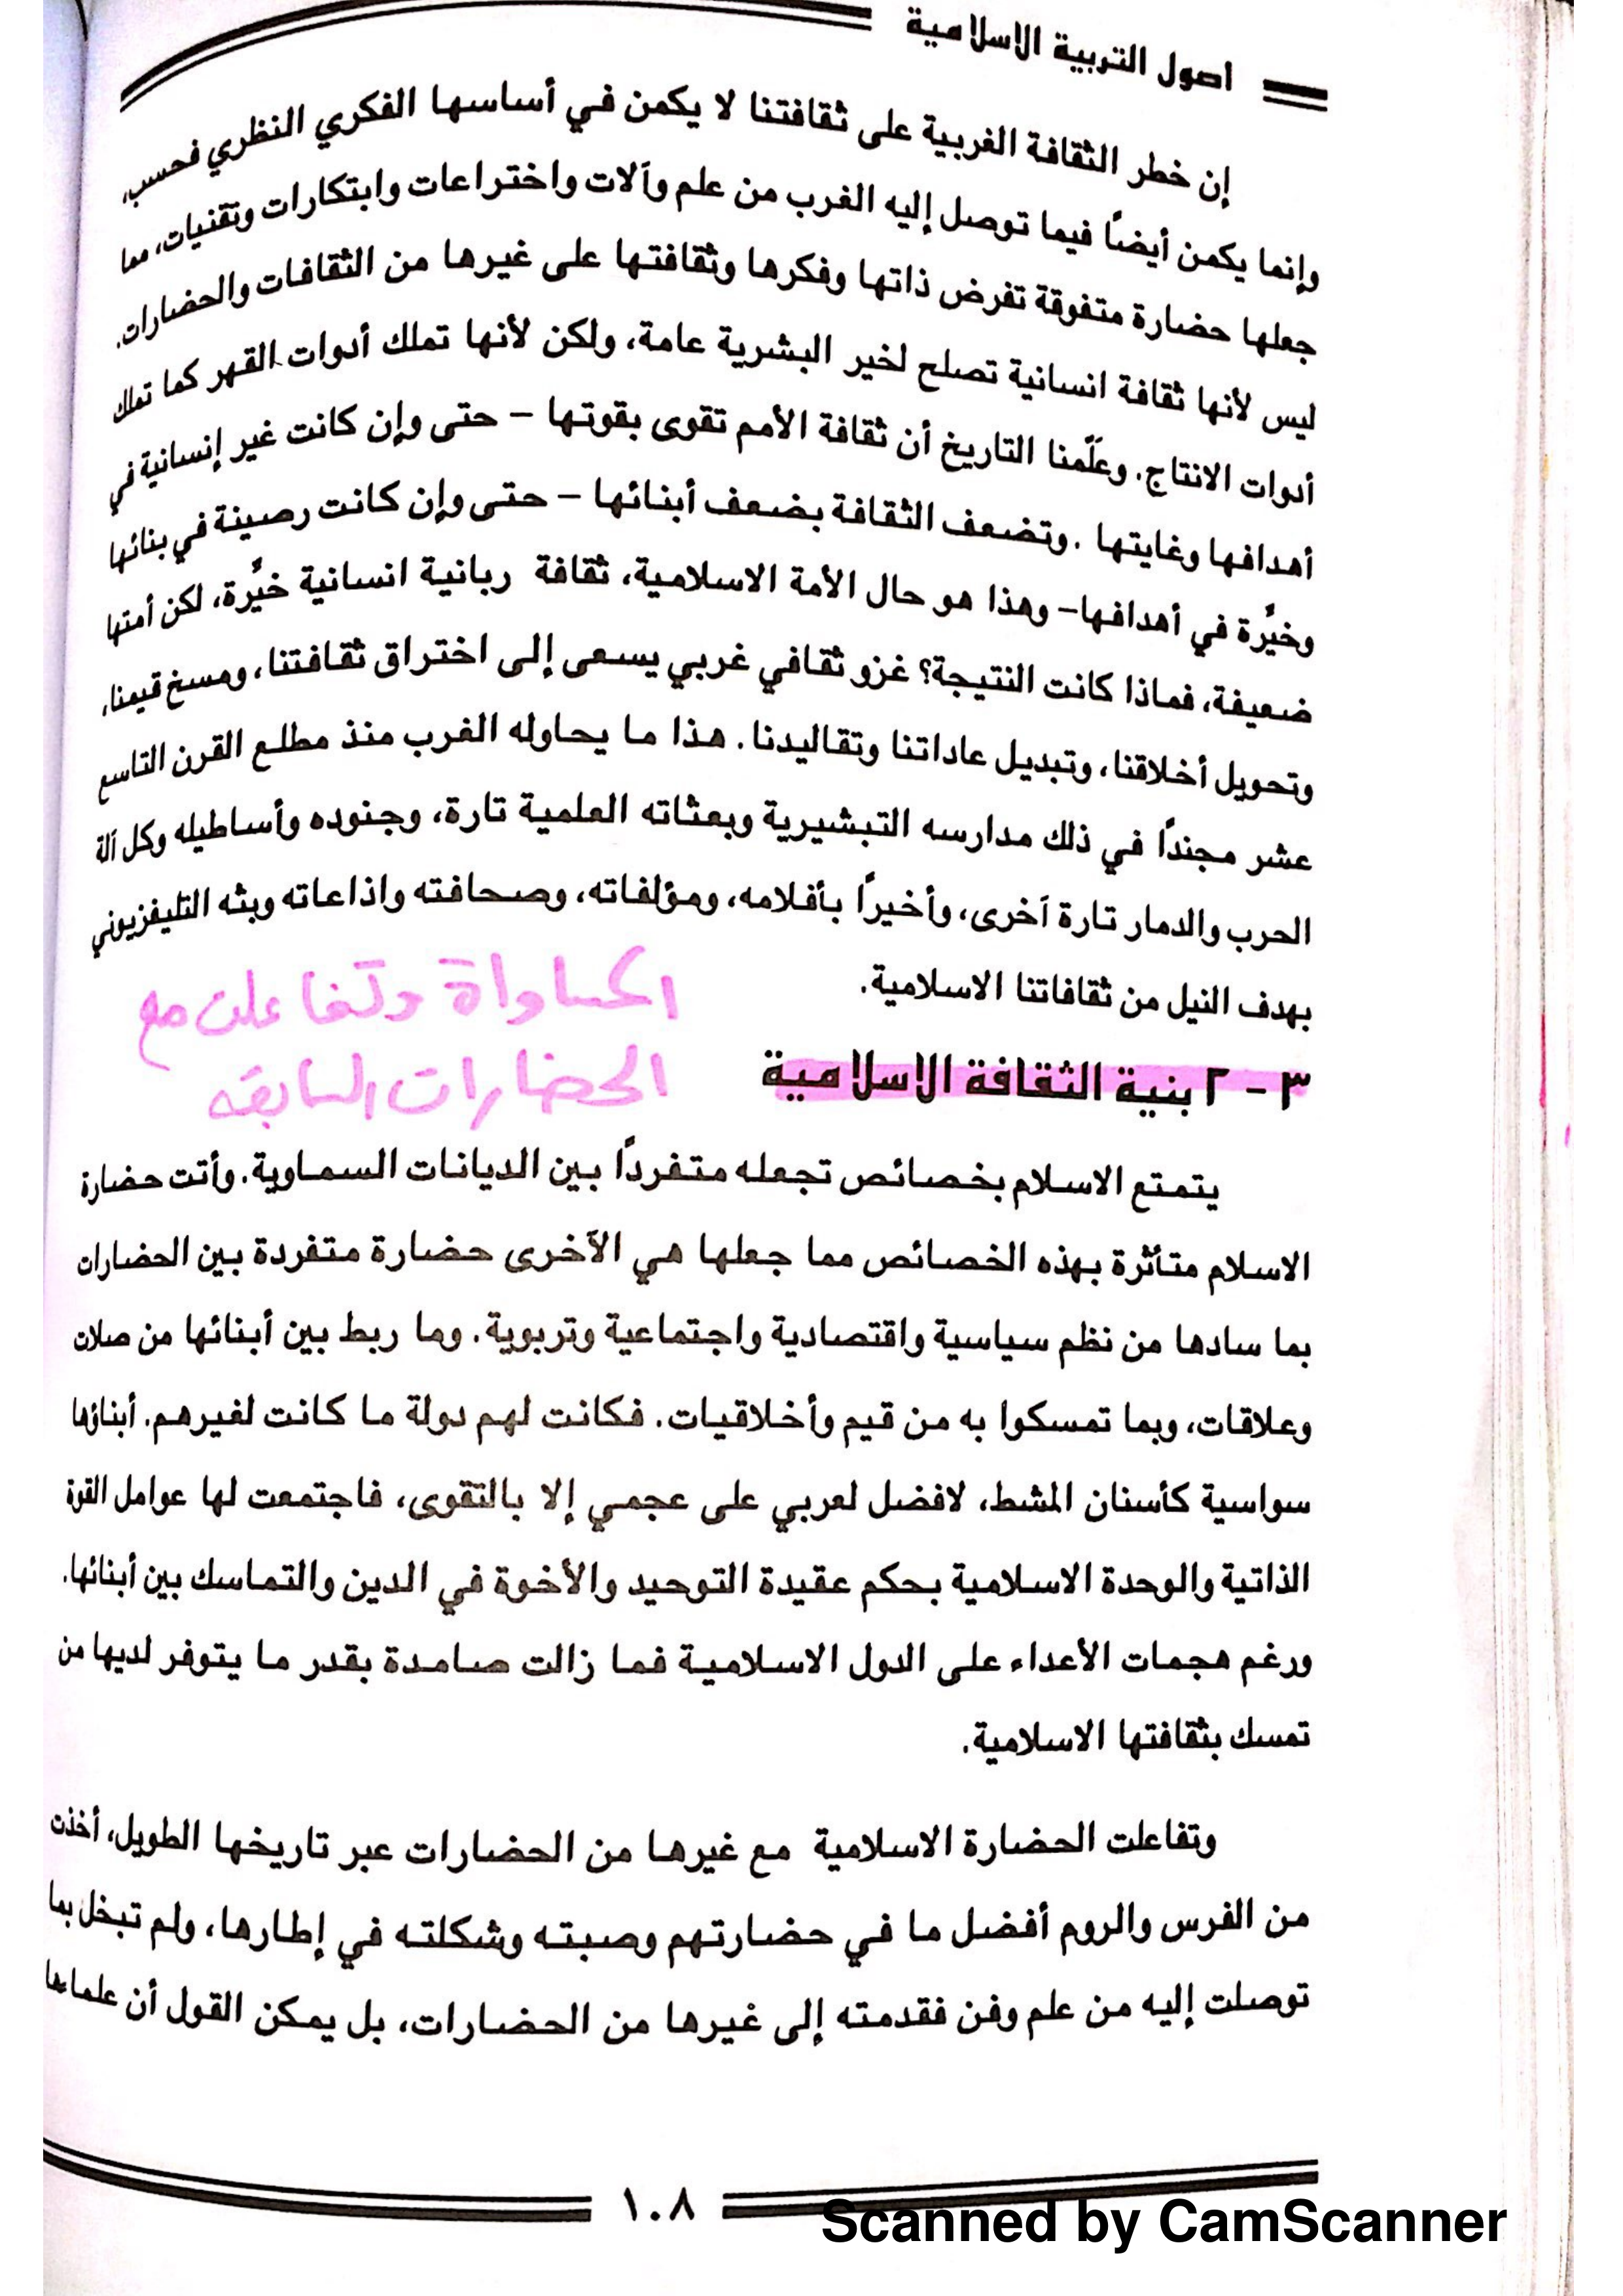 اصول التربية الاسلامية
إن خطر الثقافة الغربية على ثقافتنا لا يكمن في أساسها الفكري النظري فحسب،
وإنما يكمن أيضًا فيما توصل إليه الغرب من علم وآلات واختراعات وابتكارات وتقنيات، مما
جعلها حضارة متفوقة تفرض ذاتها وفكرها وثقافتها على غيرها من الثقافات والحضارات.
ليس لأنها ثقافة انسانية تصلح لخير البشرية عامة، ولكن لأنها تملك أدوات القهر كما تملك
أدوات الانتاج. وعلَّمنا التاريخ أن ثقافة الأمم تقوى بقوتها – حتى وإن كانت غير إنسانية في
أهدافها وغايتها . وتضعف الثقافة بضعف أبنائها – حتى وإن كانت رصينة في بنائها
وخيِّرة في أهدافها– وهذا هو حال الأمة الاسلامية، ثقافة ربانية انسانية خيِّرة، لكن أمتها
ضعيفة، فماذا كانت النتيجة؟ غزو ثقافي غربي يسعى إلى اختراق ثقافتنا، ومسخ قيمنا،
وتحويل أخلاقنا، وتبديل عاداتنا وتقاليدنا. هذا ما يحاوله الغرب منذ مطلع القرن التاسع
عشر مجندًا في ذلك مدارسه التبشيرية وبعثاته العلمية تارة، وجنوده وأساطيله وكل آلة
الحرب والدمار تارة آخرى، وأخيرًا بأفلامه، ومؤلفاته، وصحافته واذاعاته وبثه التليفزيوني
بهدف النيل من ثقافاتنا الاسلامية.
المساواة وتفاعلت مع
الحضارات السابقه
٣ - ٢ بنية الثقافة الاسلامية
يتمتع الاسلام بخصائص تجعله متفردًا بين الديانات السماوية. وأتت حضارة
الاسلام متأثرة بهذه الخصائص مما جعلها هي الآخرى حضارة متفردة بين الحضارات
بما سادها من نظم سياسية واقتصادية واجتماعية وتربوية. وما ربط بين أبنائها من صلات
وعلاقات، وبما تمسكوا به من قيم وأخلاقيات. فكانت لهم دولة ما كانت لغيرهم. أبناؤها
سواسية كأسنان المشط، لافضل لعربي على عجمي إلا بالتقوى، فاجتمعت لها عوامل القوة
الذاتية والوحدة الاسلامية بحكم عقيدة التوحيد والأخوة في الدين والتماسك بين أبنائها.
ورغم هجمات الأعداء على الدول الاسلامية فما زالت صامدة بقدر ما يتوفر لديها من
تمسك بثقافتها الاسلامية.
وتفاعلت الحضارة الاسلامية مع غيرها من الحضارات عبر تاريخها الطويل، أخذت
من الفرس والروم أفضل ما في حضارتهم وصبته وشكلته في إطارها، ولم تبخل بما
توصلت إليه من علم وفن فقدمته إلى غيرها من الحضارات، بل يمكن القول أن علماءها
١٠٨
Scanned by CamScanner